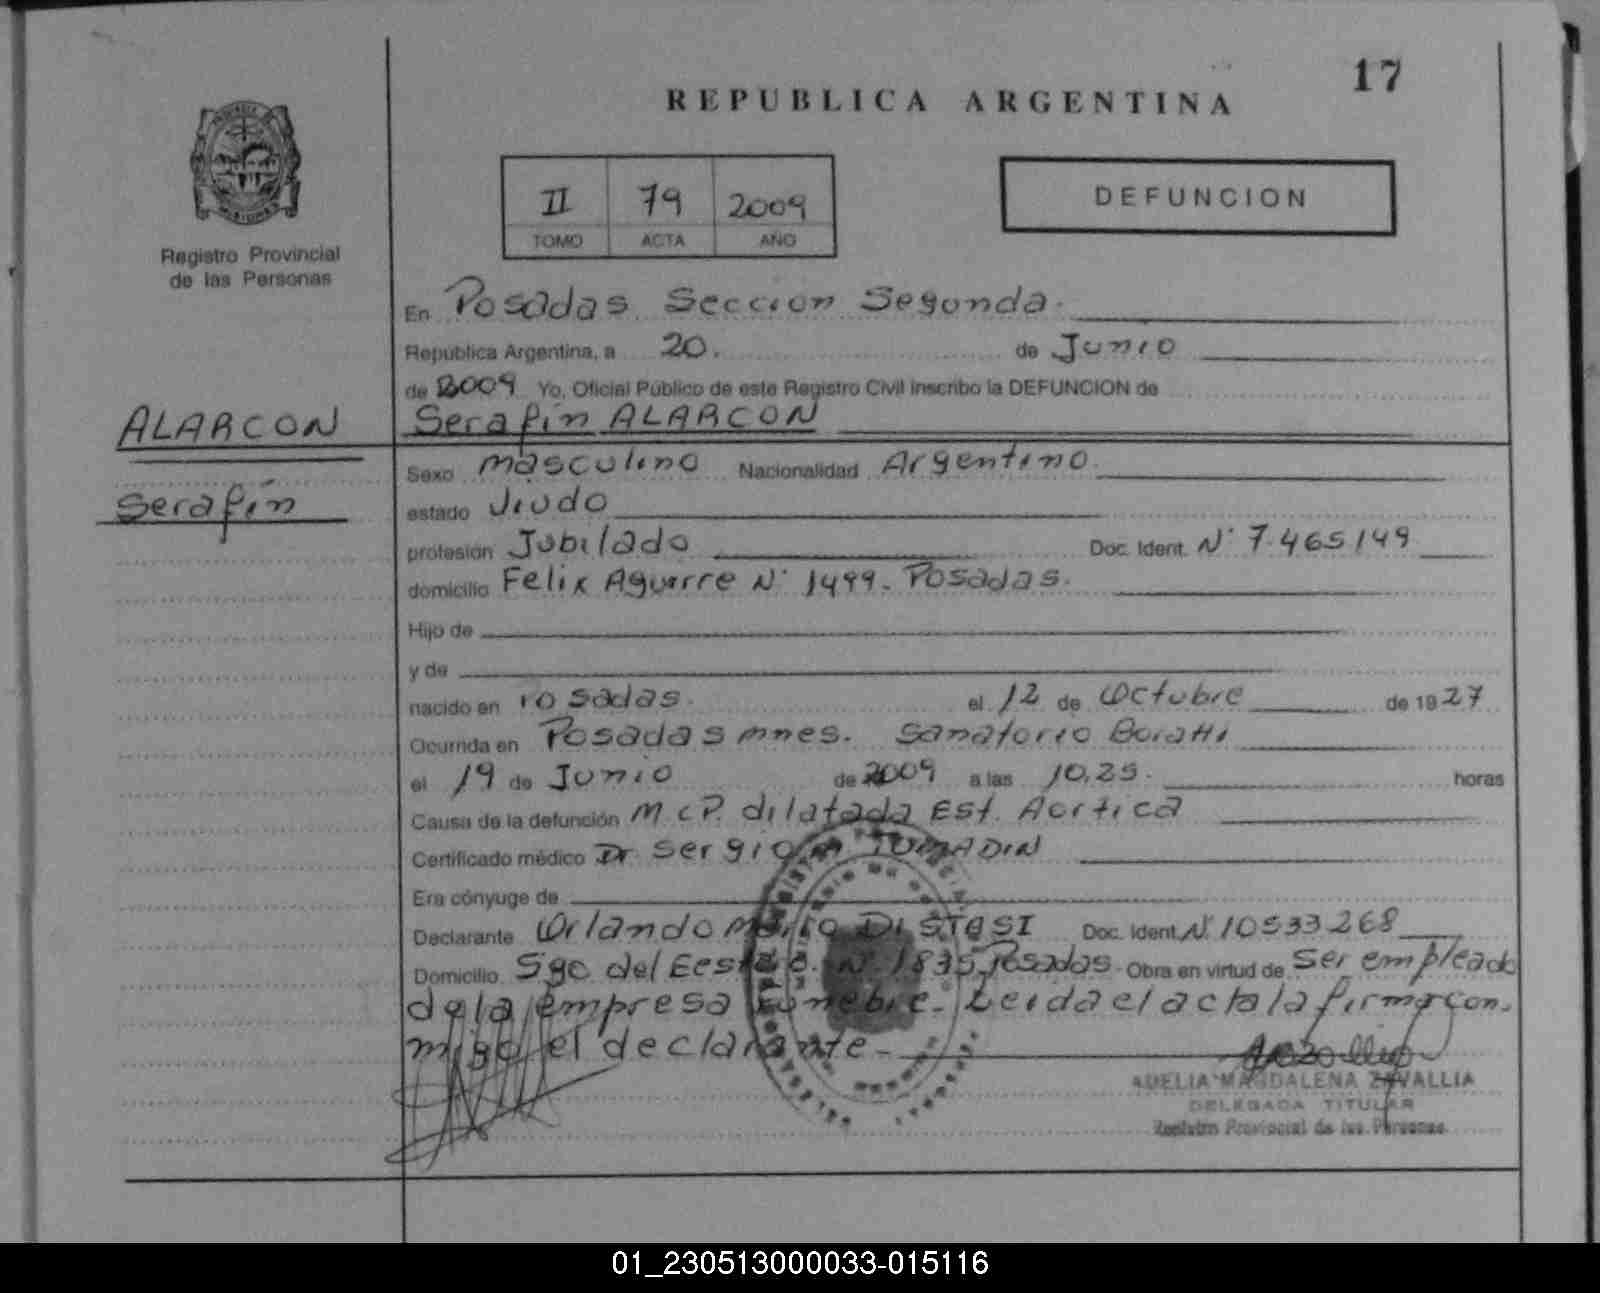 17
REPUBLICA ARGENTINA
II 79 2009
TOMO ACTA AÑO
DEFUNCION
Registro Provincial
de las Personas
En Posadas Seccion Segunda.
Republica Argentina, a 20. de Junio
de 2009 Yo, Oficial Público de este Registro Civil inscribo la DEFUNCION de
ALARCON
Serafín
Serafín ALARCON
Sexo masculino Nacionalidad Argentino.
estado Viudo
profesión Jubilado Doc. Ident. N° 7.465149
domicilio Felix Aguirre N° 1499. Posadas.
Hijo de
y de
nacido en Posadas. el 12 de Octubre de 1927
Ocurrida en Posadas mnes. Sanatorio Boratti
el 19 de Junio de 2009 a las 10,25. horas
Causa de la defunción M.C.P. dilatada Est. Aortica
Certificado médico Dr Sergio
Era cónyuge de
Declarante Orlando Mario Di STASI Doc. Ident. N° 10533268
Domicilio Sgo del N° 1835 Posadas. Obra en virtud de Ser empleado
de la empresa funebre. Leida el acta la firma con.
migo el declarante-
ADELIA MAGDALENA ZAVALLIA
DELEGADA TITULAR
Registro Provincial de las Personas
01_230513000033-015116